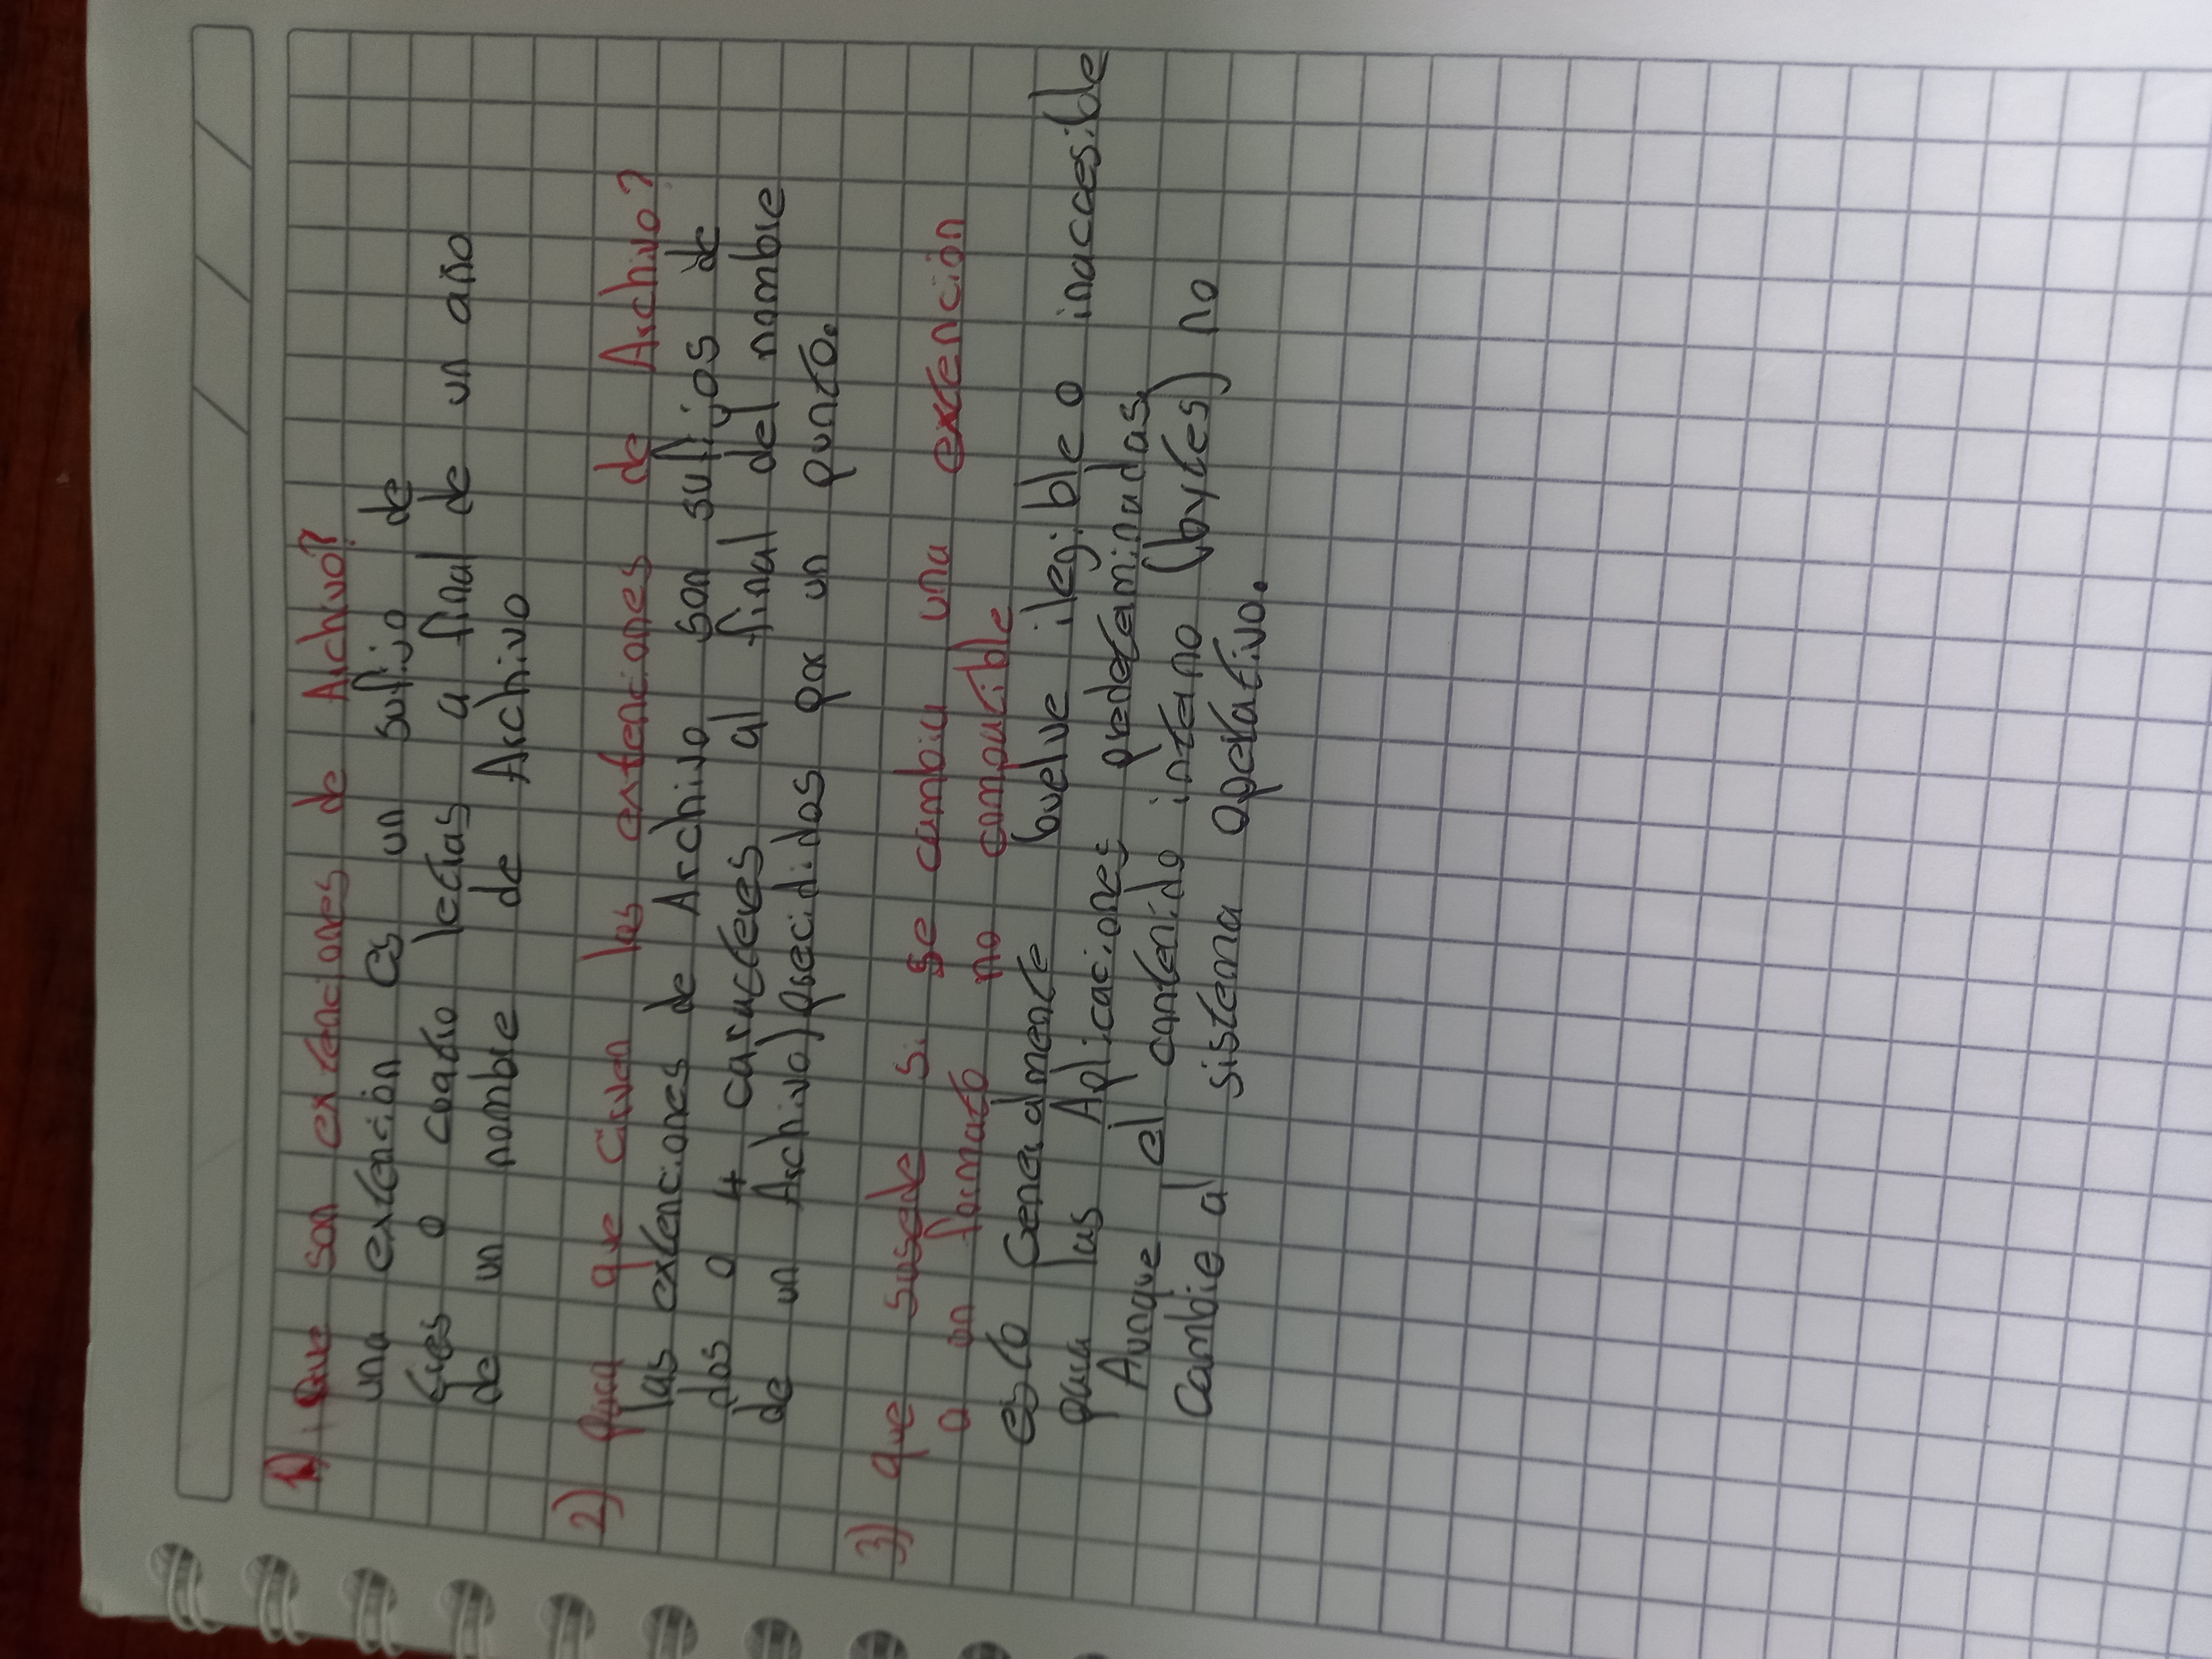 1) Que son extenciones de Archivo?
una extención es un sufijo de
tres o cuatro letras a final de un año
de un nombre de Archivo
2) para que cirven las extenciones de Archivo?
las extenciones de Archivo son sufijos de
dos o 4 caracteres al final del nombre
de un Archivo) presedidos por un punto.
3) que susede si se cambia una extención
a un formato no compatible
esto Generalmente buelve ilegible o inaccesible
para las Aplicaciones predeterminadas,
Aunque el contenido interno (bytes) no
Cambie al sistema operativo.